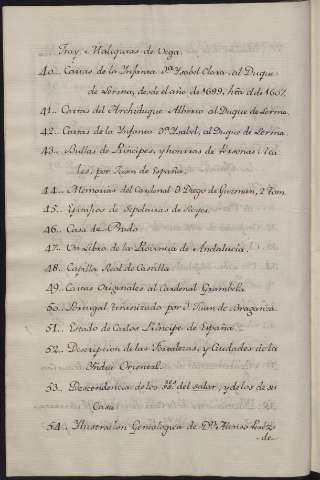 Fray, Malquias de Vega.
40.. Cartas de la Infanta D.ª Ysabel Clara, al Duque
de Lerma, desde el año de 1699. hta el de 1607.
41.. Cartas del Archiduque Alberto al Duque de Lerma.
42.. Cartas de la Infanta D.ª Ysabel, al Duque de Lerma.
43.. Bullas de Principes, y honrras de Personas Rea-
les, por Juan de España.
44.. Memorias del Cardenal D. Diego de Guzman, 2 Tom.
45.. Epitafios de Sepolturas de Reyes.
46.. Casa de Prado
47.. Un Libro de la Provincia de Andalucia.
48.. Capilla Real de Castilla
49.. Cartas Originales al Cardenal Granbela.
50.. Portugal tiranizado por D. Juan de Braganza.
51.. Estado de Carlos Principe de España.
52.. Descripcion de las Fortalezas, y Ciudades de la
Yndia Oriental.
53.. Descendencia de los del Salar, y de los de su
Casa
54.. Yllustracion Genealogica de D.n Alonso
de